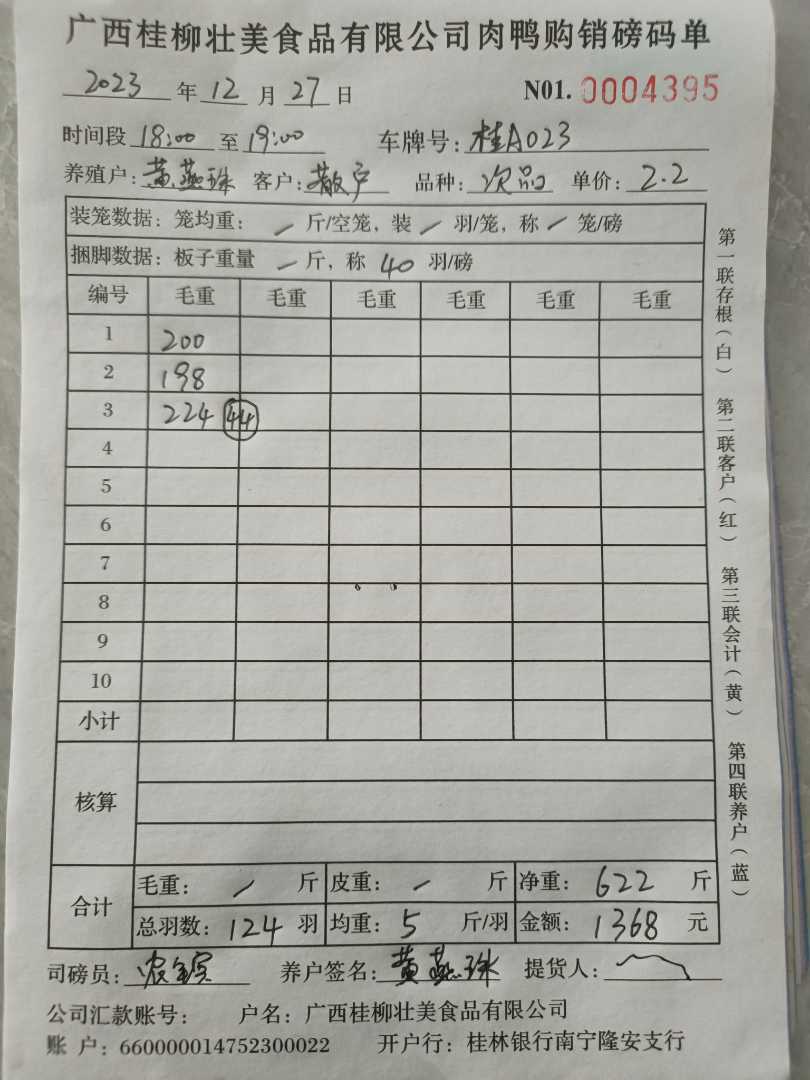 广西桂柳壮美食品有限公司肉鸭购销磅码单
2023 年 12 月 27 日 N01. 0004395
时间段 18:00 至 19:00 车牌号: 桂A023
养殖户: 黄燕珠 客户: 散户 品种: 次品 单价: 2.2
装笼数据: 笼均重: / 斤/空笼, 装 / 羽/笼, 称 / 笼/磅
捆脚数据: 板子重量 / 斤, 称 40 羽/磅
编号 毛重 毛重 毛重 毛重 毛重 毛重
1 200
2 198
3 224 44
4
5
6
7
8
9
10
小计
核算
合计 毛重: / 斤 皮重: / 斤 净重: 622 斤
总羽数: 124 羽 均重: 5 斤/羽 金额: 1368 元
司磅员: 养户签名: 黄燕珠 提货人:
公司汇款账号: 户名: 广西桂柳壮美食品有限公司
账 户: 660000014752300022 开户行: 桂林银行南宁隆安支行
第一联存根(白) 第二联客户(红) 第三联会计(黄) 第四联养户(蓝)